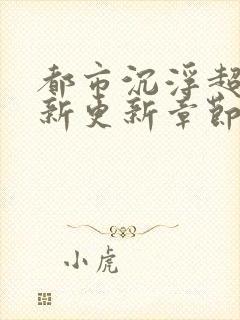 都市沉浮超
新更新章節
小虎